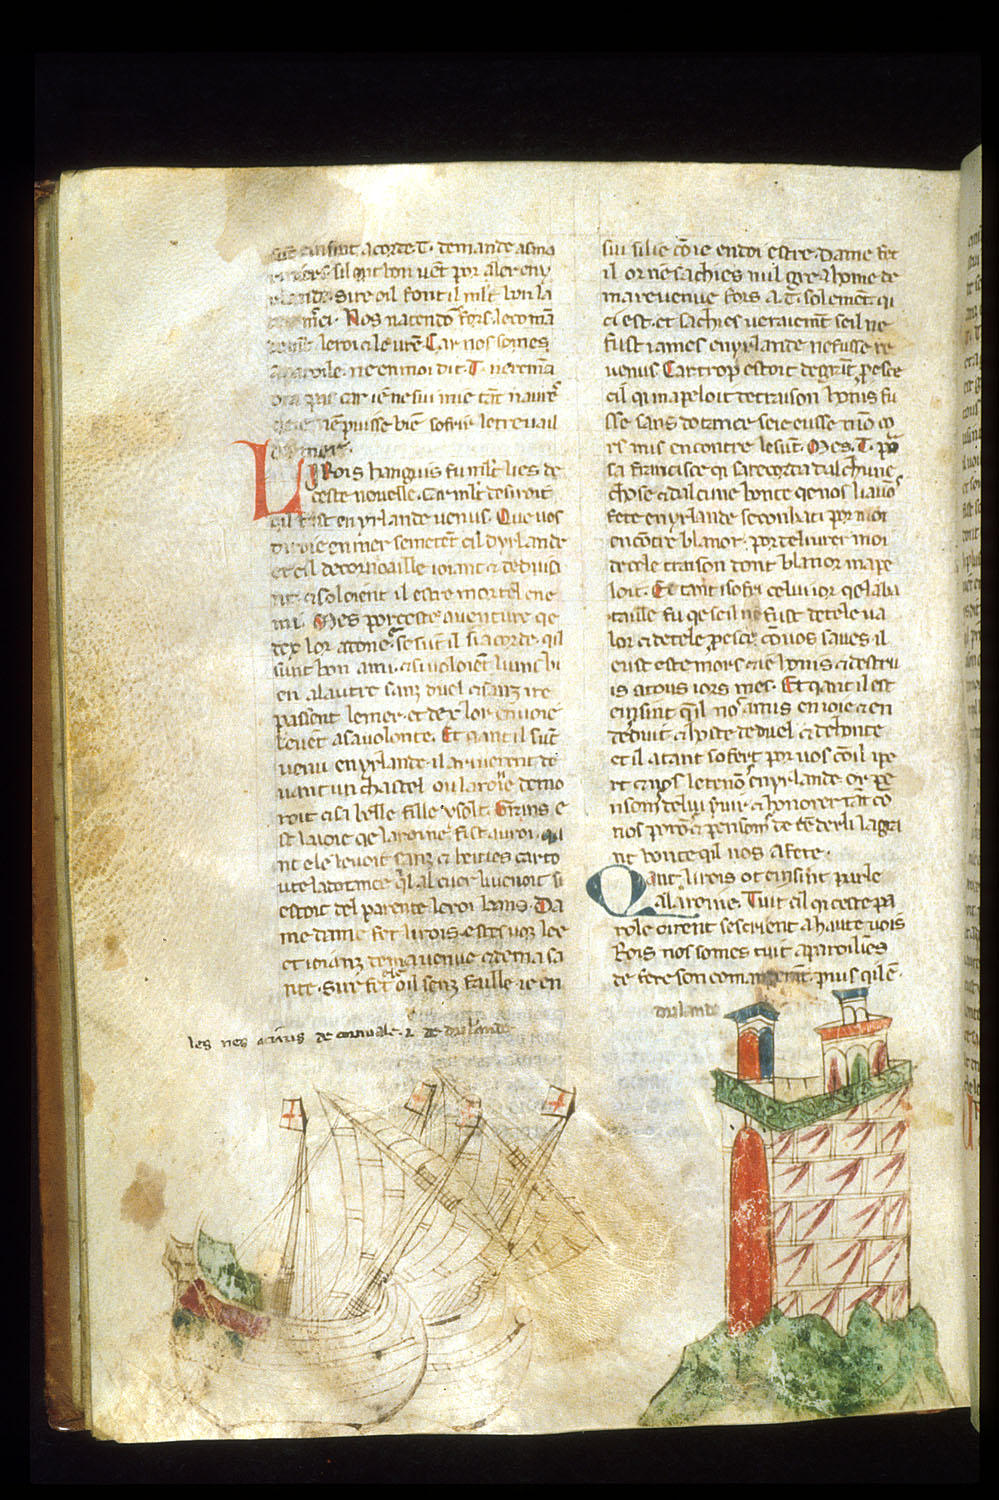 acorde T. demande asma
sil ont bon uẽt por aler eny
Sire oil font il mlt bon la
mr̃ci. Nos natendõ fors leco mã
leroi ele ur̃e. Car nos somes
aparoile. ne en moi dit. T. nerem̃a
car ie ne sui mie tãt naure
puisse biẽ sofrir letrevail
Li Rois hanguis fu mlt lies de
ceste nouelle. Car mlt desiroit
qil fust en yrlande uenus. Que uos
diroie en mer se metẽt cil dyrlande
et cil de cornoaille ioiant &
& soloient il estre mortel ene
mi. Mes por ceste auenture qe
dex lor a done se sũt il si acorde. qil
sunt bon ami. & si uoloiẽt li uns bi
en a lautre sanz duel & sanz ire
passent le mer. et dex lor enuoie
le uẽt a sa uolonte. Et qant il sũt
uenu en yrlande. il ariuerent de
uant un chastel ou la roine demo
roit & sa belle fille ysolt. Grans e
st la ioie qe la roine fist au roi. qi
nt ele le uoit sanz & haities car to
ute la dotance qil al cuer li uenoit si
estoit del parente le roi bans. Da
me dame fet li rois. estes uos lee
et ioianz de ma uenue & de ma sa
nte. Sire fet ele oil senz faille. ie en
sui si lie cõ ie en doi estre. Dame fet
il or ne sachies nul gre a home de
ma reuenue fors a. T. solemẽt qi
ci est. et sachies ueraiemẽt se il ne
fust iames en yrlande ne fusse re
uenus. Car trop estoit de grãt proesce
cil qi mapeloit de traison honis fu
sse sanz dotance se ie eusse mõ co
rs mis encontre le suẽ. Mes. T. por
sa franchise qi sa recorda dalchune
chose & dalcune bonte qe nos li auõs
fete en yrlande se conbati por moi
encõtre blanor. por deliurer moi
de cele traison dont blanor mape
loit. Et tant i sofri celui ior qe la ba
taille fu qe se il ne fust de tele ua
lor & de tele proesce cõ uos saues. il
eust este mors & ie honis & destru
is a tous iors mes. Et qant il est
einsint qil nos a mis en ioie & en
deduit & hoste de duel & de honte
et il a tant sofert por uos cõ il ipe
rt & nos le tenõs en yrlande or pe
nsom de lui seruir & honorer tãt cõ
nos porõs & pensoms de rẽdre li la gra
nt bonte qil nos a fete.
Qant li rois ot einsint parle
a la roine. Tuit cil qi ceste pa
role oirent sescrient a haute uois
Rois nos somes tuit aparoillies
de fere son comandemẽt. puis qil ẽ
les nes de cornuale. & de dirlande
dirlande